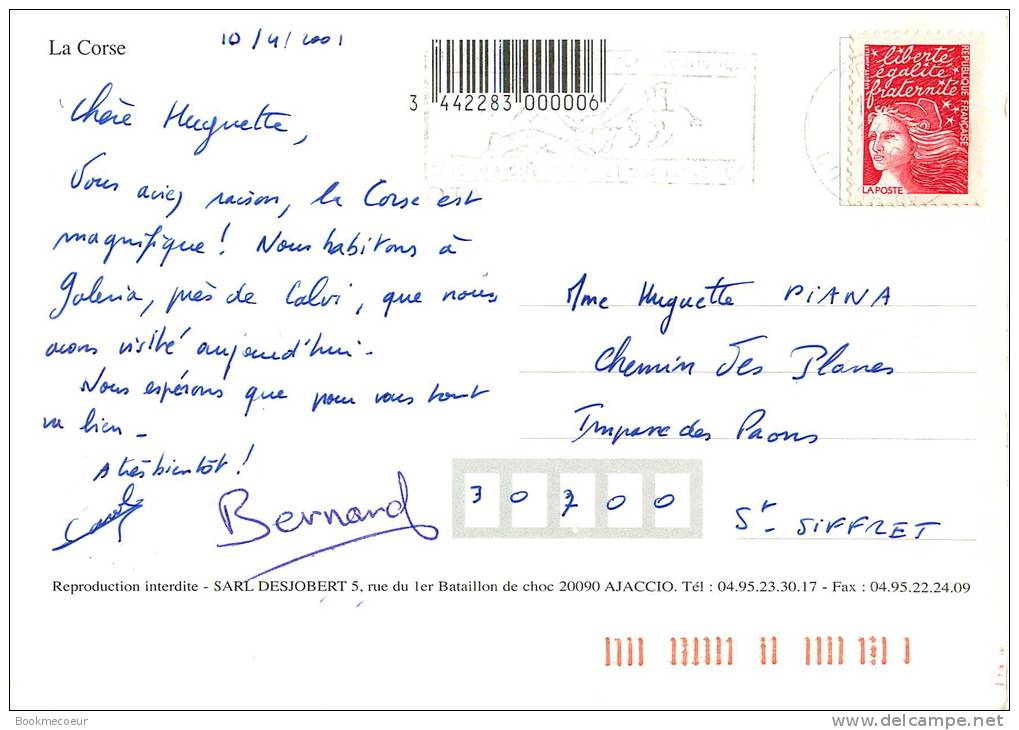 La Corse
10/4/2001
3 442283 000006
liberté
égalité
fraternité
RÉPUBLIQUE FRANÇAISE
LA POSTE
Chère Huguette,
Vous aviez raison, la Corse est
magnifique ! Nous habitons à
Galeria, près de Calvi, que nous
avons visité aujourd'hui.
Nous espérons que pour vous tout
va bien.
A très bientôt !
Bernard
Mme Huguette PIANA
Chemin des Planes
Impasse des Paons
30700
St SIFFRET
Reproduction interdite - SARL DESJOBERT 5, rue du 1er Bataillon de choc 20090 AJACCIO. Tél : 04.95.23.30.17 - Fax : 04.95.22.24.09
Bookmecoeur
www.delcampe.net